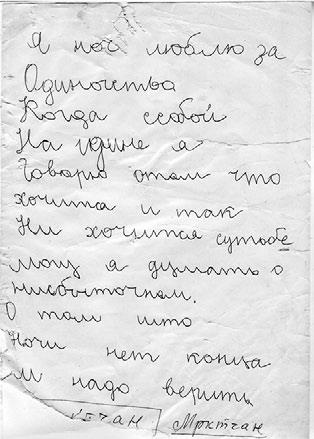 Я ноч люблю за
Одиночства
Когда ссобой
На идине я
Говорю отом что
хочитса и так
Ни хочитса сутьбе
могу я думать о
нисбыточнам.
О том што
Ночи нет конца
и надо верить
Мкртчан